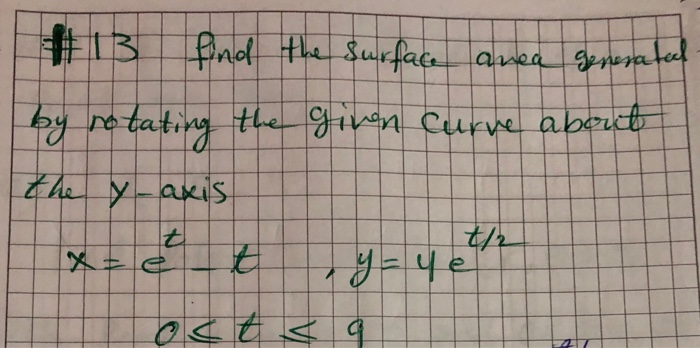 #13 find the surface area generated
by rotating the given curve about
the y-axis
x = e^t - t , y = 4e^{t/2}
0 ≤ t ≤ 9